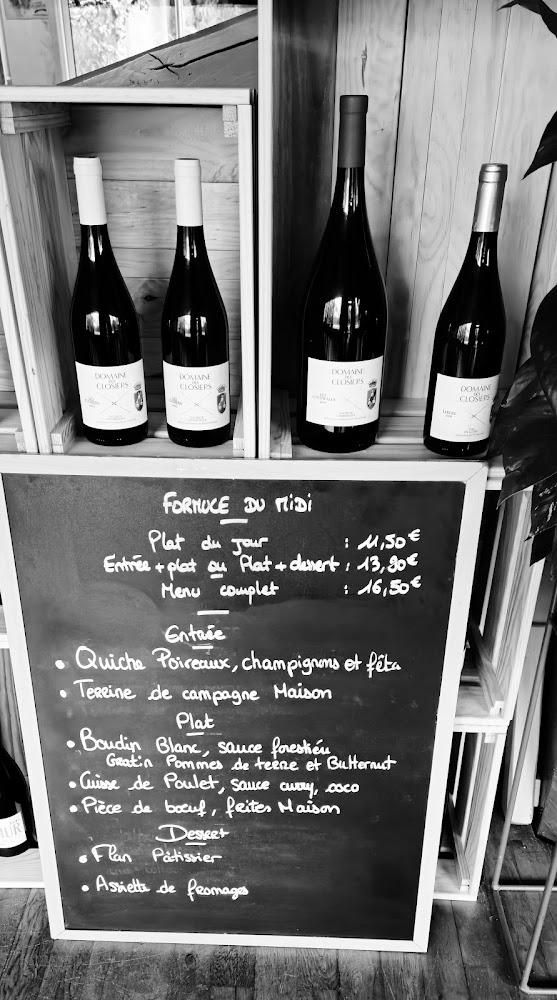 DOMAINE
DES
CLOSIERS
DOMAINE
CLOSIERS
DOMAINE
DES
CLOSIERS
DOMAINE
DES
CLOSIERS
FORMULE DU MIDI
Plat du jour : 11,50€
Entrée + plat ou Plat + dessert : 13,90€
Menu complet : 16,50€
Entrée
• Quiche Poireaux, champignons et fêta
• Terrine de campagne Maison
Plat
• Boudin Blanc, sauce forestière
Gratin Pommes de terre et Butternut
• Cuisse de Poulet, sauce curry, coco
• Pièce de bœuf, frites Maison
Dessert
• Flan Pâtissier
• Assiette de fromages